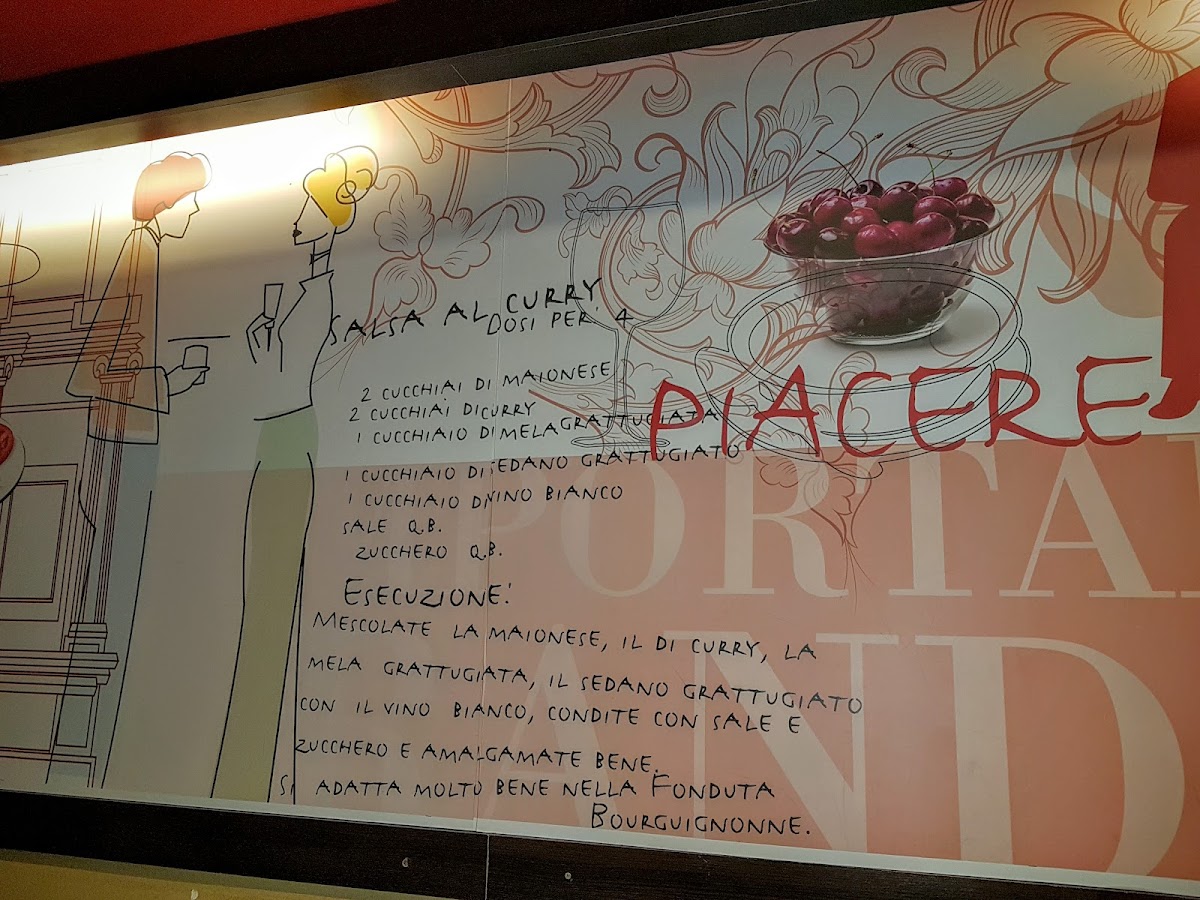 SALSA AL CURRY
DOSI PER' 4
2 CUCCHIAI DI MAIONESE
2 CUCCHIAI DI CURRY
1 CUCCHIAIO DI MELA GRATTUGIATA
1 CUCCHIAIO DI SEDANO GRATTUGIATO
1 CUCCHIAIO DI VINO BIANCO
SALE Q.B.
ZUCCHERO Q.B.
ESECUZIONE:
MESCOLATE LA MAIONESE, IL DI CURRY, LA
MELA GRATTUGIATA, IL SEDANO GRATTUGIATO
CON IL VINO BIANCO, CONDITE CON SALE E
ZUCCHERO E AMALGAMATE BENE.
SI ADATTA MOLTO BENE NELLA FONDUTA
BOURGUIGNONNE.
PIACERE
PORTA
AND